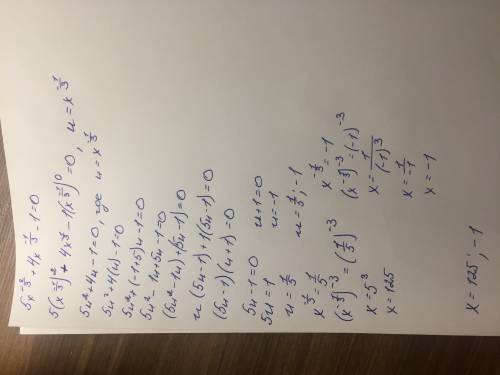 5x^(-2/3) + 4x^(-1/3) - 1 = 0
5(x^(-1/3))^2 + 4x^(-1/3) - 1(x^(-1/3))^0 = 0, u = x^(-1/3)
5u² + 4u - 1 = 0, где u = x^(-1/3)
5u² + 4(u) - 1 = 0
5u² + (-1+5)u - 1 = 0
5u² - 1u + 5u - 1 = 0
(5u² - 1u) + (5u - 1) = 0
u(5u - 1) + 1(5u - 1) = 0
(5u - 1)(u + 1) = 0
5u - 1 = 0 u + 1 = 0
5u = 1 u = -1
u = 1/5 u = 1/5; -1
x^(-1/3) = 1/5 x^(-1/3) = -1
(x^(-1/3))^(-3) = (1/5)^(-3) (x^(-1/3))^(-3) = (-1)^(-3)
x = 5³ x = 1/(-1)³
x = 125 x = 1/-1
x = -1
x = 125; -1